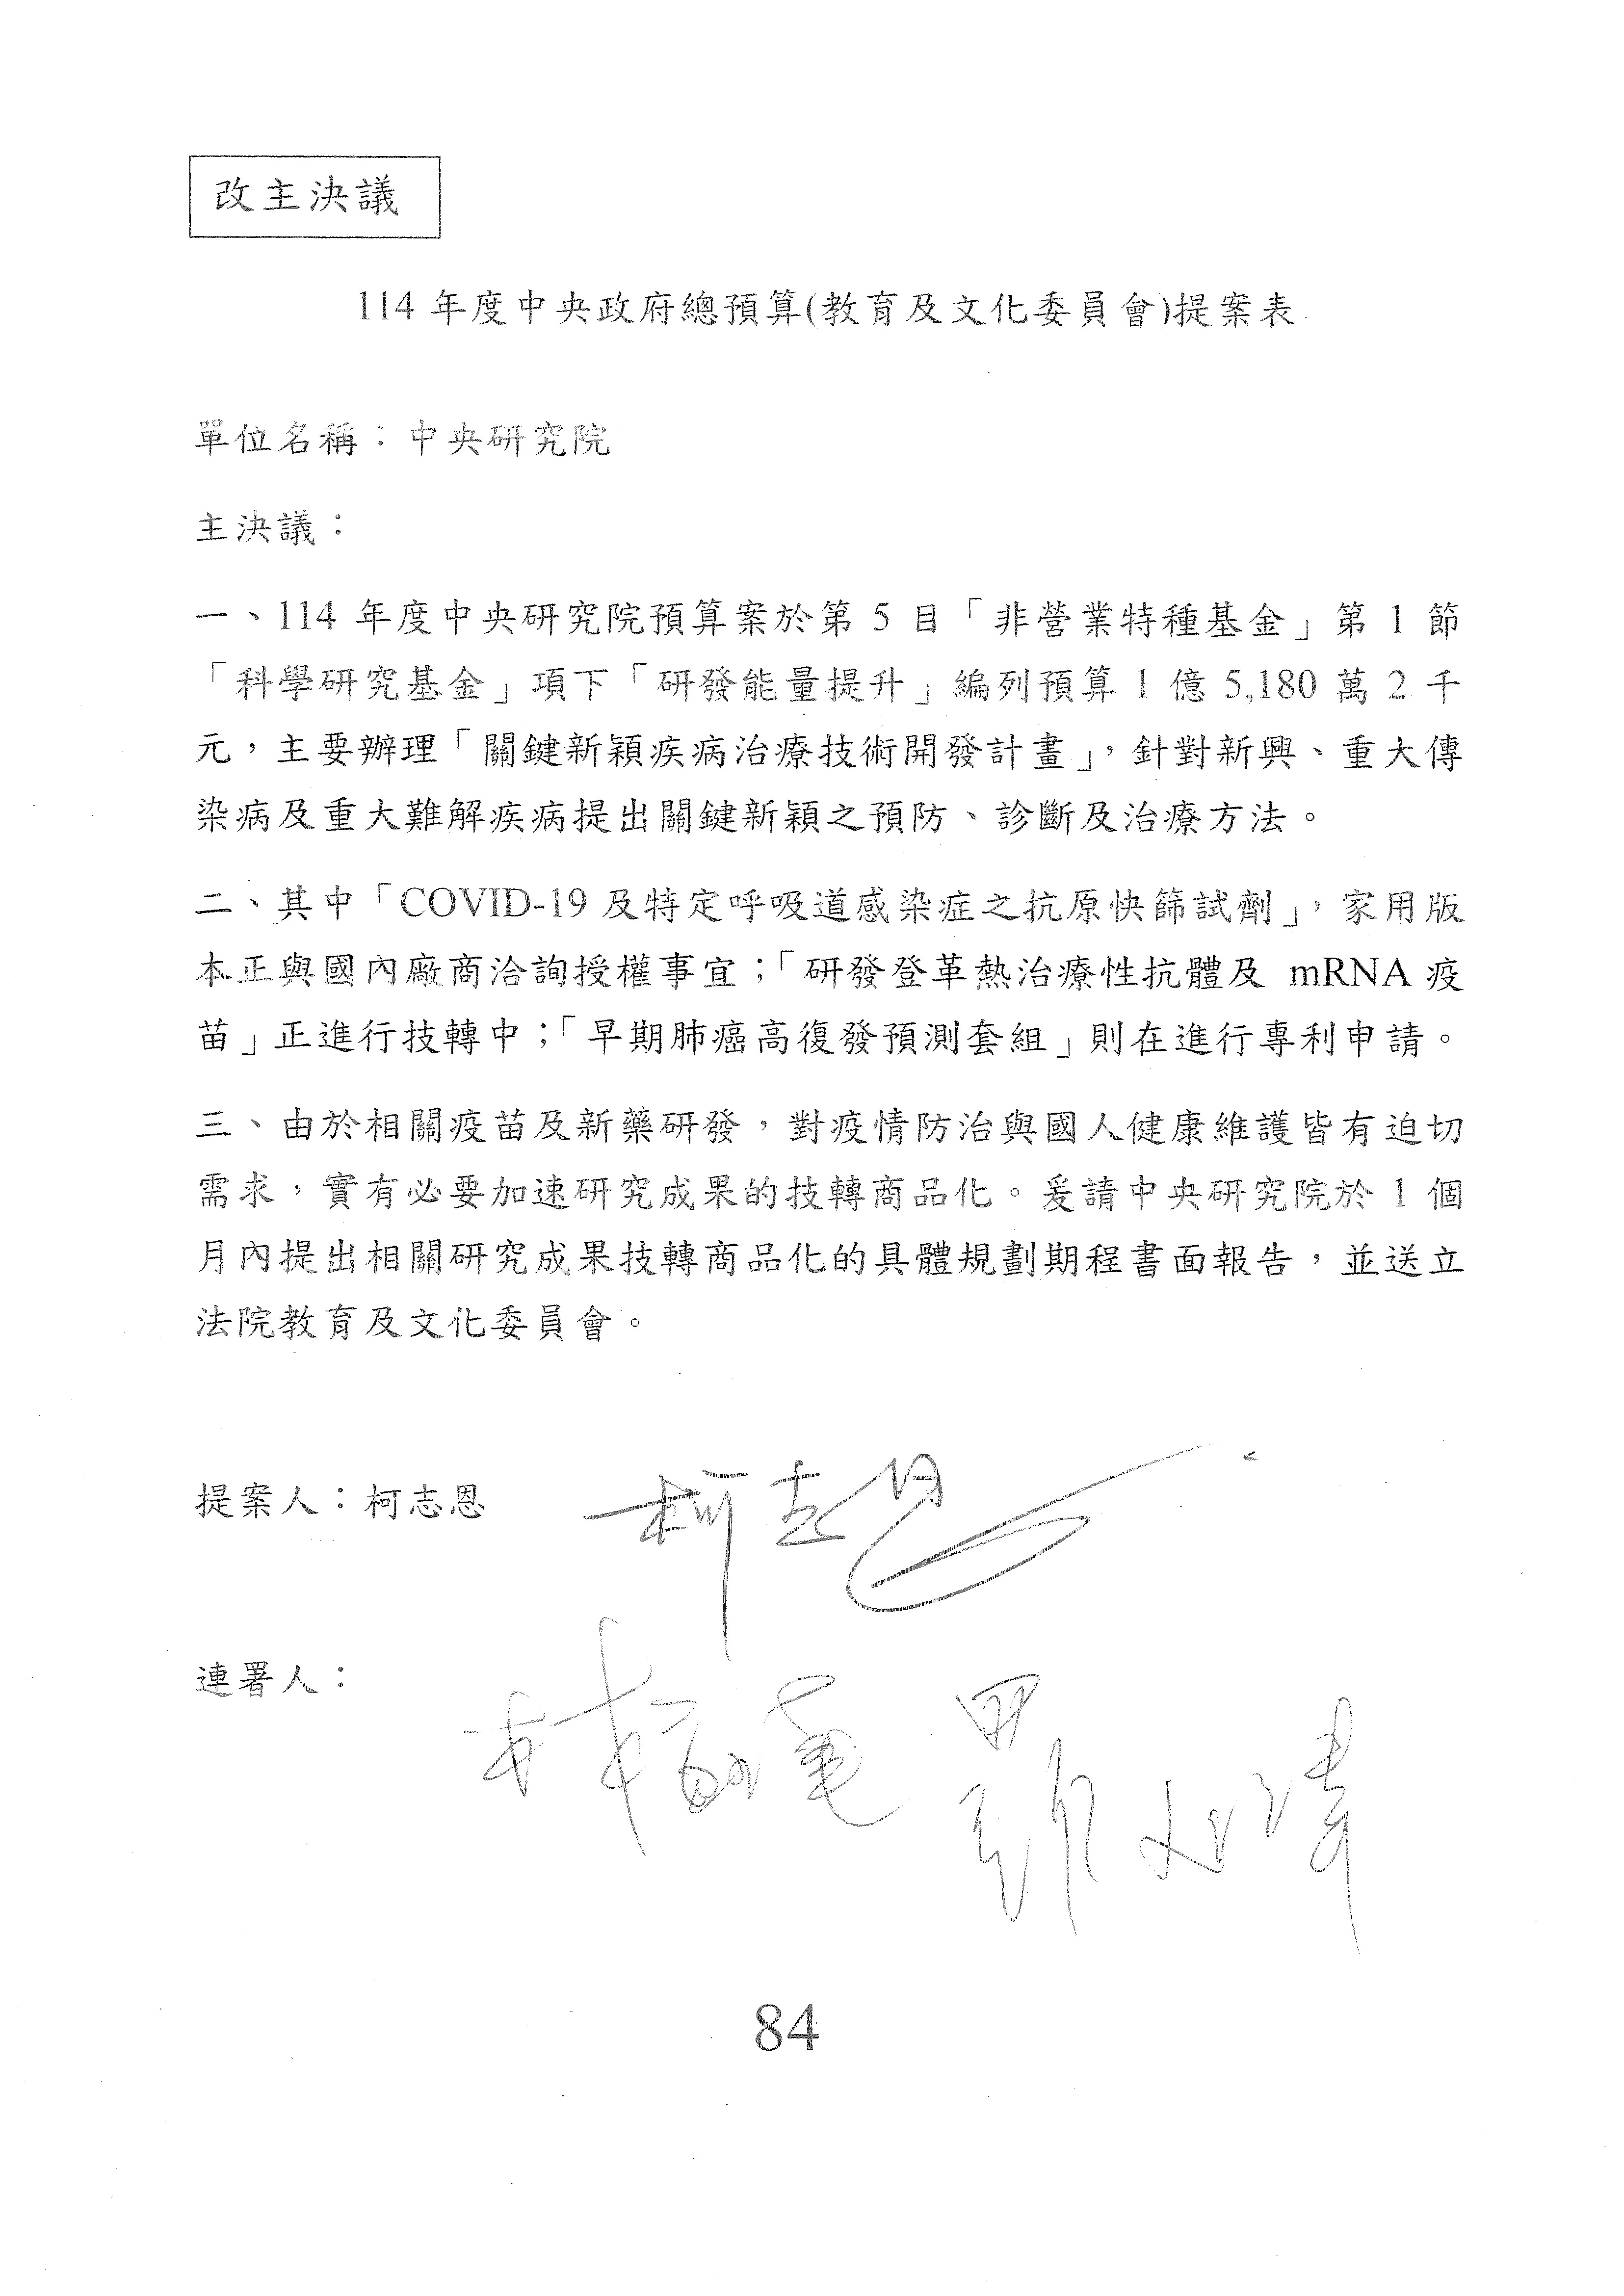 改主決議
114 年度中央政府總預算(教育及文化委員會)提案表
單位名稱：中央研究院
主決議：
一、114 年度中央研究院預算案於第 5 目「非營業特種基金」第 1 節
「科學研究基金」項下「研發能量提升」編列預算 1 億 5,180 萬 2 千
元，主要辦理「關鍵新穎疾病治療技術開發計畫」，針對新興、重大傳
染病及重大難解疾病提出關鍵新穎之預防、診斷及治療方法。
二、其中「COVID-19 及特定呼吸道感染症之抗原快篩試劑」，家用版
本正與國內廠商洽詢授權事宜；「研發登革熱治療性抗體及 mRNA 疫
苗」正進行技轉中；「早期肺癌高復發預測套組」則在進行專利申請。
三、由於相關疫苗及新藥研發，對疫情防治與國人健康維護皆有迫切
需求，實有必要加速研究成果的技轉商品化。爰請中央研究院於 1 個
月內提出相關研究成果技轉商品化的具體規劃期程書面報告，並送立
法院教育及文化委員會。
提案人：柯志恩 柯志恩
連署人：
84